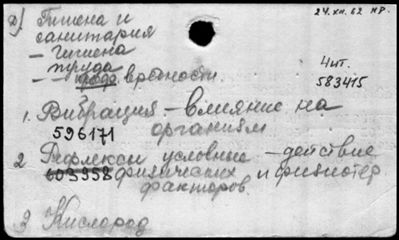 д) Гигиена и
санитария
24.XII.62 НР.
– гигиена
труда
– – проф. вредности
4 шт.
583415
1. Вибрация – влияние на
596171 организм
2 Рефлексы условные – действие
603958 физических и физиотер
факторов.
3 Кислород